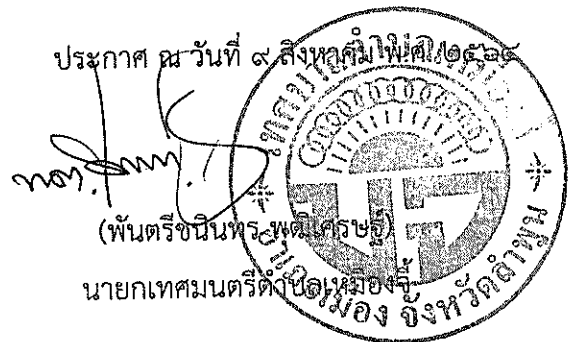 ประกาศ ณ วันที่ ๙ สิงหาคม พ.ศ. ๒๕๖๔
(พันตรีชนินทร พุฒิเศรษฐ์)
นายกเทศมนตรีตำบลเหมืองจี้
อำเภอเมือง จังหวัดลำพูน